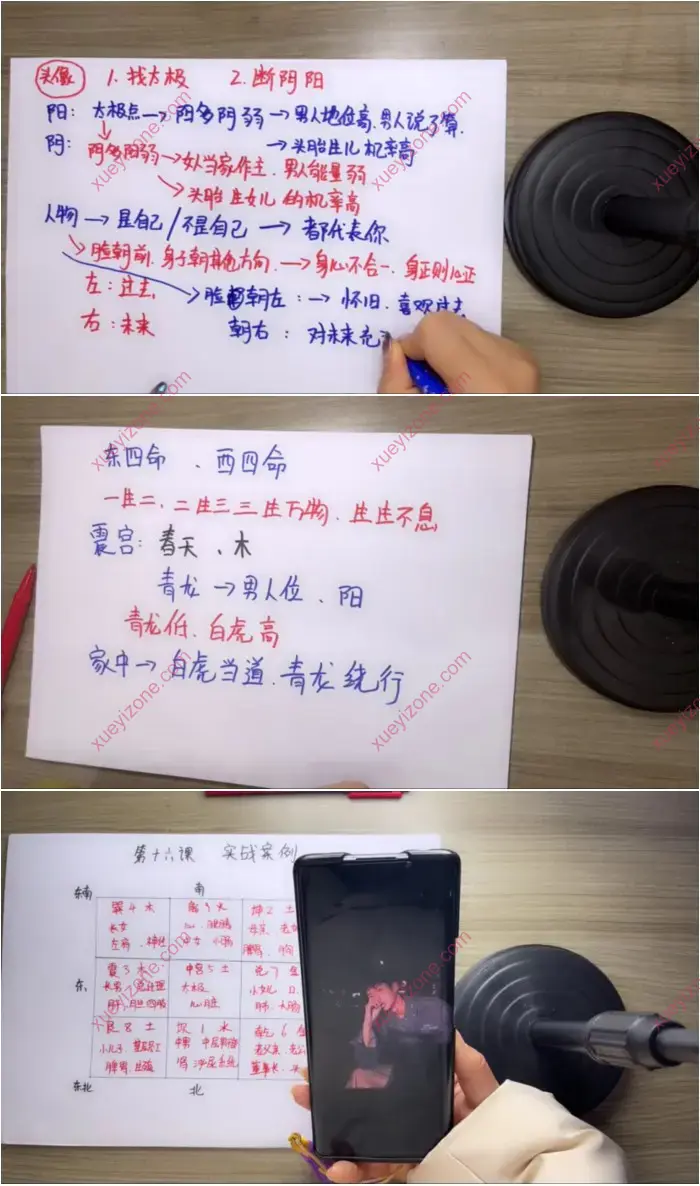 头像 1. 找太极 2. 断阴阳
阳: 太极点→阳多阴弱→男人地位高.男人说了算.
→头胎生儿机率高
阴: 阴多阳弱→女人当家作主.男人能量弱
→头胎生女儿的机率高
人物→是自己/不是自己→都代表你
脸朝前.身子朝其他方向.→身心不合一.身正则心正
左:过去. 脸朝左:→怀旧.喜欢过去
右:未来 朝右: 对未来充
东四命、西四命
一生二、二生三三生万物.生生不息
震宫:春天、木
青龙→男人位、阳
青龙低.白虎高
家中→白虎当道.青龙绕行
第十六课 实战案例
东南 南
巽4木 离9火 坤2土
长女 中女 小肠
东 震3木 中宫5土 兑7金
长男 太极 小女儿
艮8土 坎1水 乾6金
小儿子 中男 中层 老父亲
董事长
东北 北
xueyizone.com
xueyizone.com
xueyizone.com
xueyizone.com
xueyizone.com
xueyizone.com
xueyizone.com
xueyizone.com
xueyizone.com
xueyizone.com
xueyizone.com